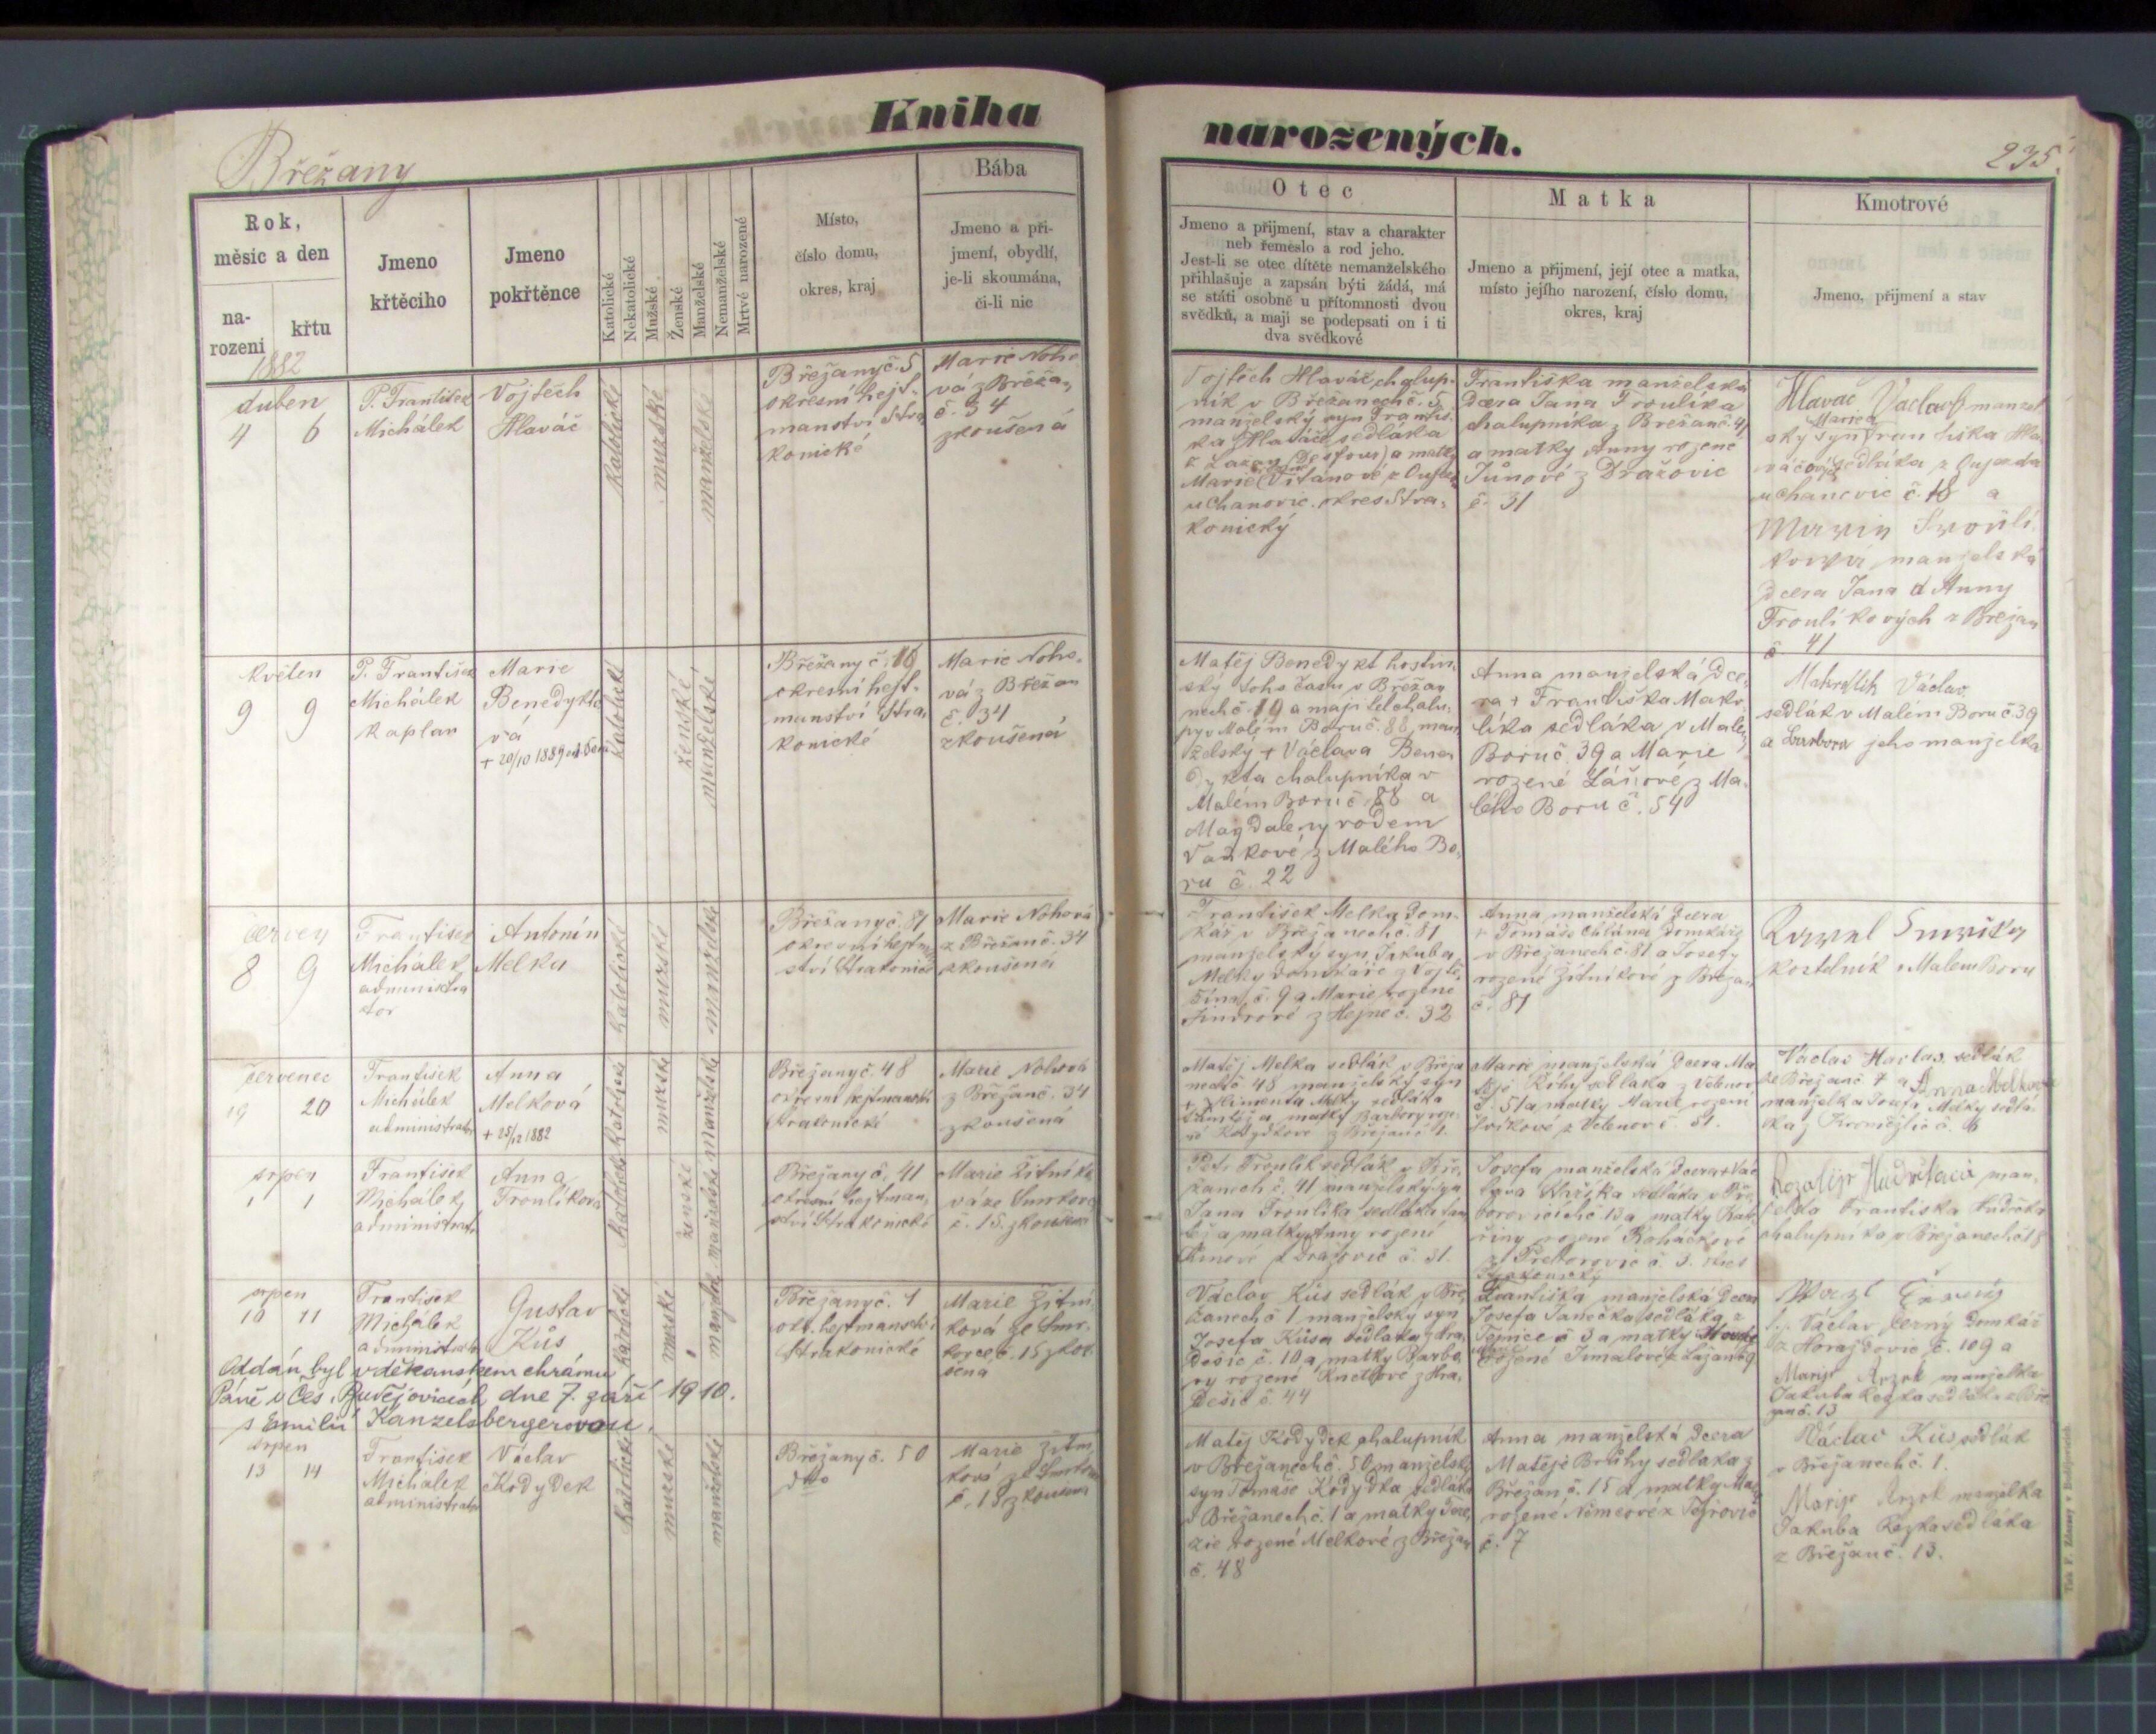 Kniha
narozených.
Břežany
235
Rok,
měsic a den
na-
rozeni
křtu
1882
Jmeno
křtěciho
Jmeno
pokřtěnce
Katolické
Nekatolické
Mužské
Ženské
Manželské
Nemanželské
Mrtvé narozené
Místo,
číslo domu,
okres, kraj
Bába
Jmeno a při-
jmení, obydlí,
je-li skoumána,
či-li nic
Otec
Jmeno a přijmení, stav a charakter
neb řemeslo a rod jeho.
Jest-li se otec dítěte nemanželského
přihlašuje a zapsán býti žádá, má
se státi osobně u přítomnosti dvou
svědků, a mají se podepsati on i ti
dva svědkové
Matka
Jmeno a přijmení, její otec a matka,
místo jejího narození, číslo domu,
okres, kraj
Kmotrové
Jmeno, přijmení a stav
duben
4 6
P. František
Michálek
Vojtěch
Hlaváč
katolické
mužské
manželské
Břežany č. 5
okresní hejt-
manství Stra
konické
Marie Noho
vá z Břeža,
č. 34
zkoušená
Vojtěch Hlaváč, chalup-
ník v Břežanech č. 5,
manželský syn Františ-
ka Hlaváče sedláka
a matky
Marie
uchanovic okres Stra-
konický
Františka manželská
dcera Jana Froulíka
chalupníka z Břežan č. 41
a matky Anny rozené
Jůnové z Dražovic
č. 31
Hlavač Václav manžel
ský syn Františka Hla
sedláka z Oujezda
č. 18 a
dcera Jana a Anny
Froulíkových z Břežan
č 41
květen
9 9
P. František
Michálek
kaplan
Marie
Benedykto
vá
+ 20/10 1889
katolické
ženské
manželské
Břežany č. 16
okresní hejt-
manství Stra
konické
Marie Noho-
vá z Břežan
č. 34
zkoušená
Matěj Benedykt hostin,
ský toho času v Břežan
nech č. 19 a majitel chalu,
py v Malém Boru č. 88, man
želský + Václava Bene
dykta chalupníka v
Malém Boru č. 88 a
Magdaleny rodem
Vaňkové z Malého Bo,
ru č. 22
Anna manželská dce,
ra + Františka Mako
líka sedláka v Malém
Boru č. 39 a Marie
rozené z Ma-
lého Boru č. 54
Václav
sedlák v Malém Boru č. 39
a Barbora jeho manželka
červen
8 9
František
Michálek
administra
tor
Antonín
Melka
katolické
mužské
manželské
Břežany č. 81
okresní hejtman
ství Strakonice
Marie Nohová
z Břežan č. 34
zkoušená
František Melka dom-
kář v Břežanech č. 81
manželský syn Jakuba
Melky domkáře z
č. 9 a Marie rozené
Jindrové z Hejné č. 32
Anna manželská dcera
+ Tomáše domkáře
v Břežanech č. 81 a Josefy
rozené Žitníkové z Břežan
č. 81
Karel
kostelník v Malém Boru
červenec
19 20
František
Michálek
administrator
Anna
Melková
+ 25/12 1882
katolické
mužské
manželské
Břežany č. 48
okresní hejtmanství
Strakonické
Marie Nohová
z Břežan č. 34
zkoušená
Matěj Melka sedlák v Břeža
nech č. 48 manželský syn
+ Klimenta Melky sedláka
tamtéž a matky Barbory roze-
né Kodydkové z Břežan č. 1.
Marie manželská dcera Ma
těje sedláka z Velenov
č. 51 a matky Marie rozené
z Velenov č. 51.
Václav sedlák
ze Břežan č. 7 a Anna Melková
manželka Josefa Melky sedlá-
ka z č. 6
srpen
1 1
František
Michálek
administrator
Anna
Froulíková
katolické
ženské
manželské
Břežany č. 41
okresní hejtman,
ství Strakonické
Marie Žitníko
vá ze Smrkovce
č. 15. zkoušená
Petr Froulík sedlák v Bře,
žanech č. 41 manželský syn
Jana Froulíka sedláka tam
též a matky Anny rozené
Jůnové z Dražovic č. 31.
Josefa manželská dcera + Vác
lava sedláka v
č. 13 a matky Kate
řiny rozené
z č. 3. okres
Strakonický
Rozalije man,
želka Františka
chalupníka v Břežanech č. 18
srpen
10 11
František
Michálek
administrator
Gustav
Kůs
katolické
mužské
manželské
Břežany č. 1
okr. hejtmanství
Strakonické
Marie Žitní,
ková ze Smr-
kovce č. 15 zkou
šená
Oddán byl v děkanském chrámu
Páně v Čes. Budějovicích dne 7. září 1910.
s Emilií Kanzelsbergerovou.
Václav Kůs sedlák v Bře,
žanech č 1 manželský syn
Josefa Kůsa sedláka z Hra,
dešic č. 10 a matky Barbo,
ry rozené z Hra,
dešic č 44
Františka manželská dcera
Josefa Janečka sedláka z
č 3 a matky
rozené
t.j. Václav Černý domkář
z Horažďovic č. 109 a
Marije manželka
Jakuba Rezka sedláka z Bře
žan č. 13
srpen
13 14
František
Michálek
administrator
Václav
Kodydek
katolické
mužské
manželské
Břežany č. 50
dtto
Marie Žitní
ková ze Smrkovce
č. 15 zkoušená
Matěj Kodydek chalupník
v Břežanech č. 50 manželský
syn Tomáše Kodydka sedláka
v Břežanech č. 1 a matky Tere,
zie rozené Melkové z Břežan
č. 48
Anna manželská dcera
Matěje sedláka z
Břežan č. 15 a matky
rozené Němcové z
č. 7
Václav Kůs sedlák
v Břežanech č. 1.
Marije manželka
Jakuba Rezka sedláka
z Břežan č. 13.
Tisk F. Zdarssy v Budějovicích